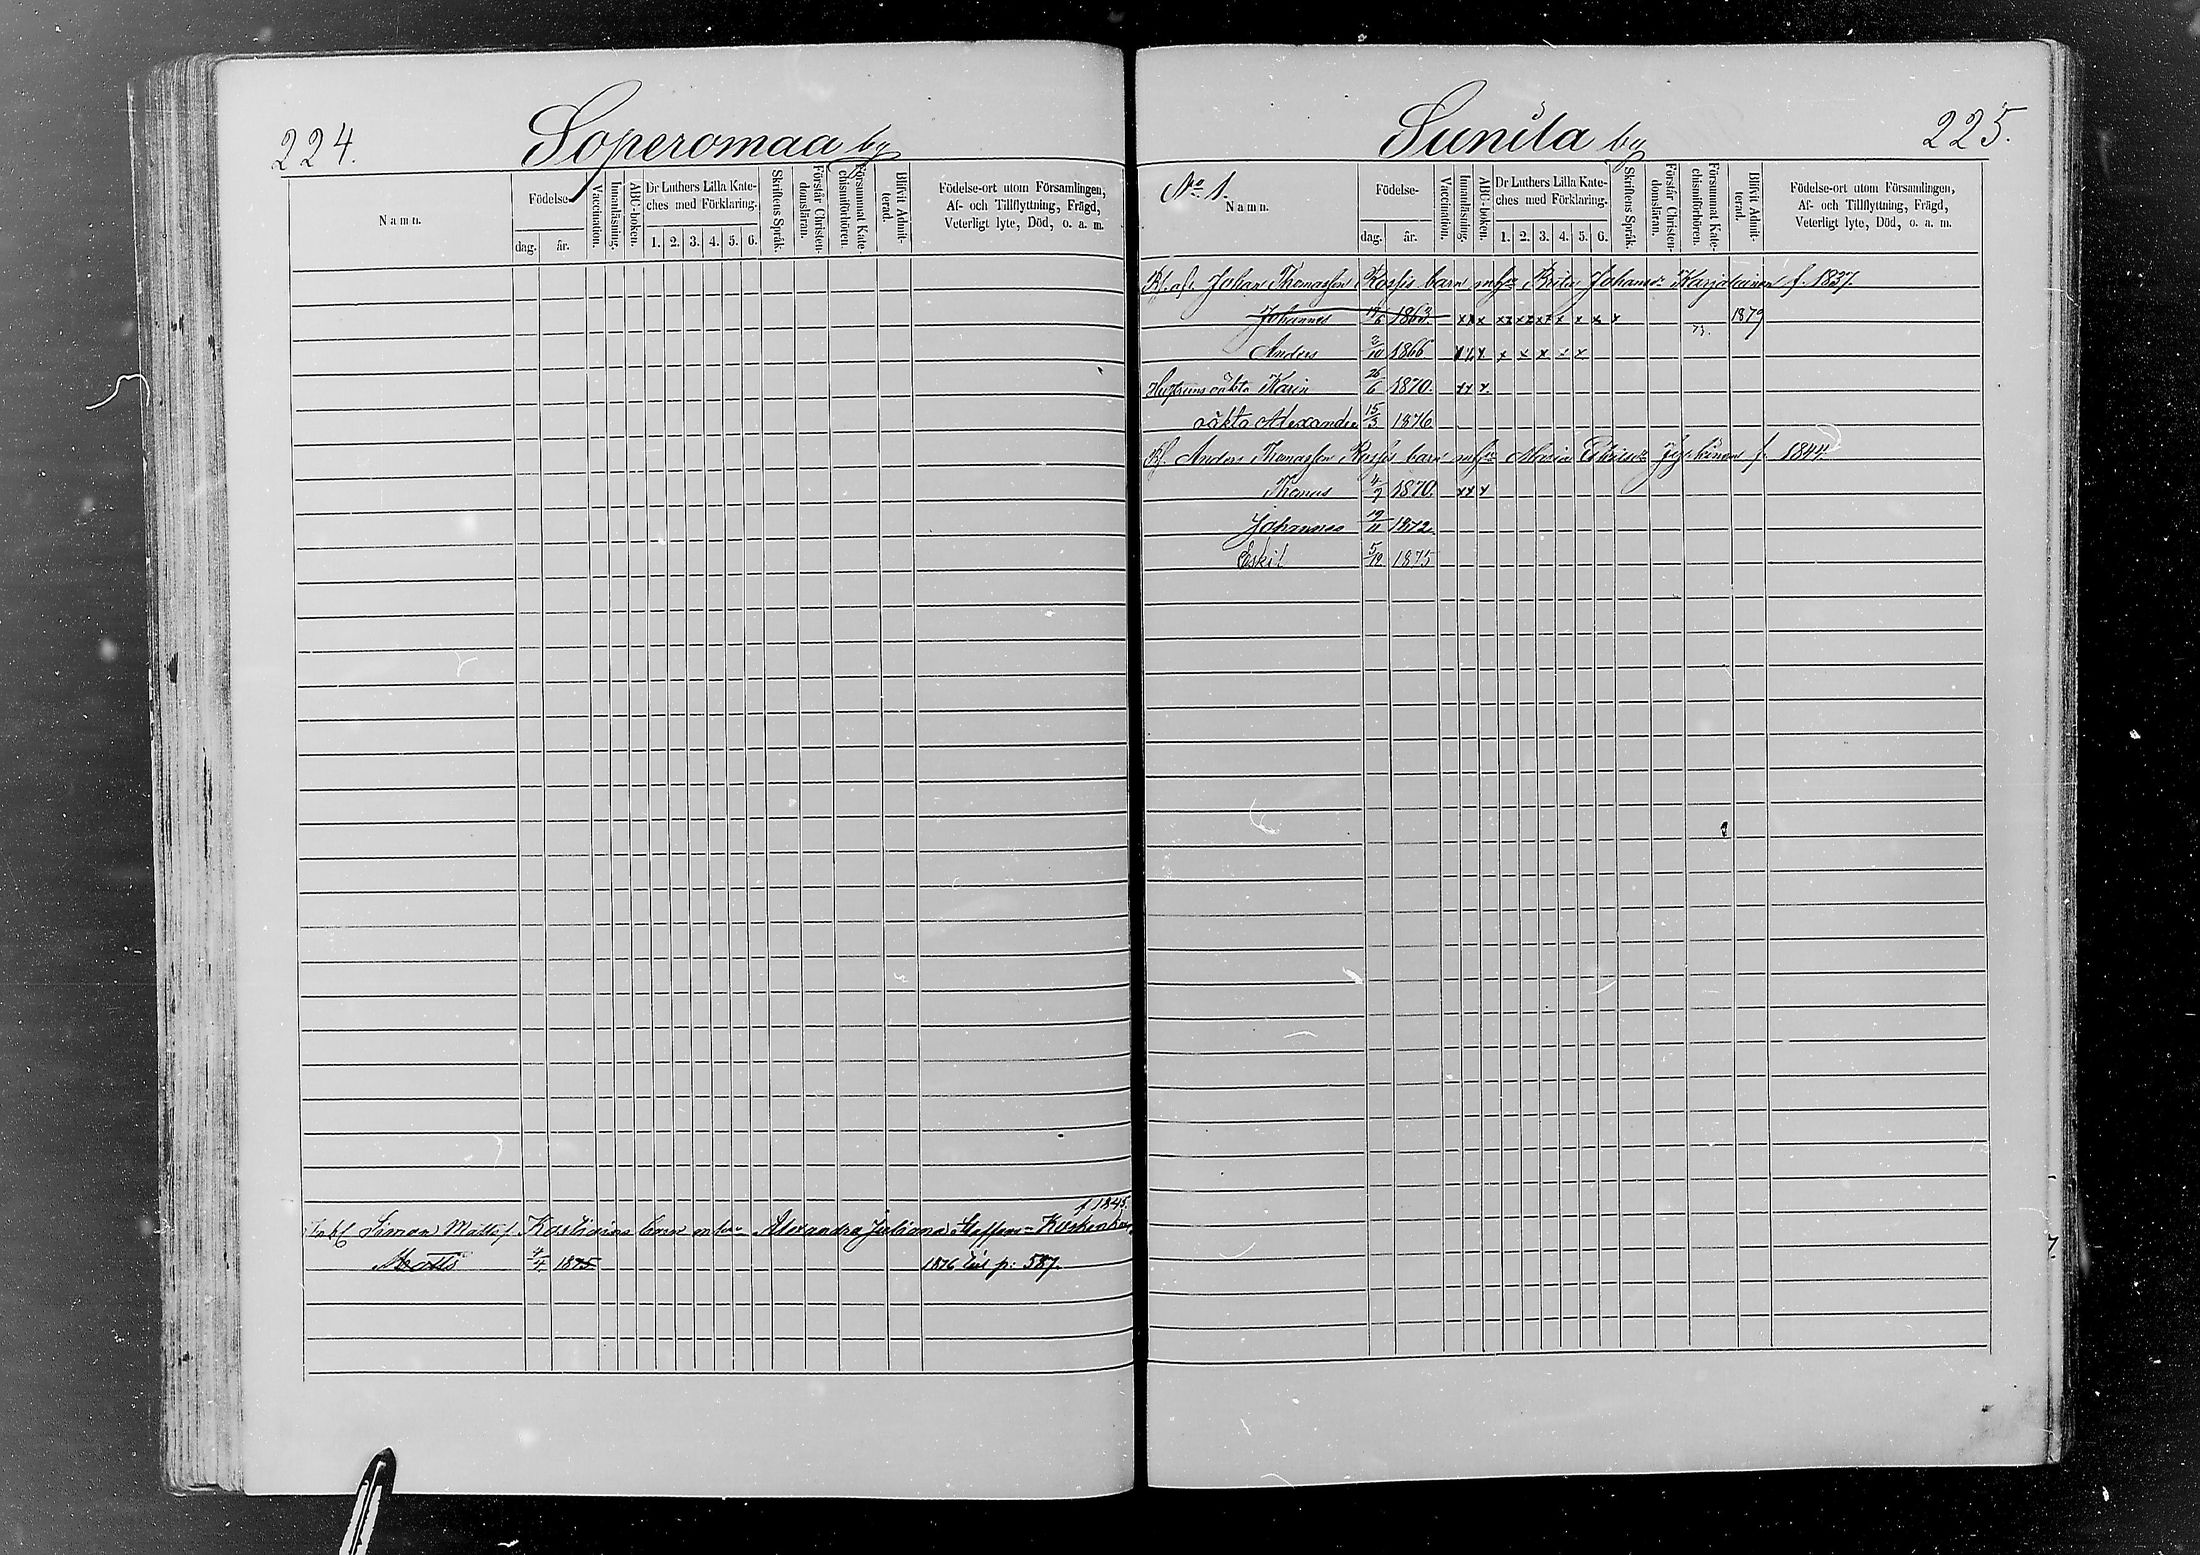 224.
Soperomaa by
Namn.
Födelse-
dag. år.
Vaccination.
Innanläsning.
ABC-boken.
Dr Luthers Lilla Kate-
ches med Förklaring.
1. 2. 3. 4. 5. 6.
Skriftens Språk.
Förstår Christen-
domsläran.
Försummat Kate-
chismiförhören.
Blifvit Admit-
terad.
Födelse-ort utom Församlingen,
Af- och Tillflyttning, Frägd,
Veterligt lyte, Död, o. a. m.
f 1845.
Simon Matts f. barn Alexandra Juliana Staffans
Matts 4/4 1875 1876 till p: 587.
Sunila by
225.
No 1.
Namn.
Födelse-
dag. år.
Vaccination.
Innanläsning.
ABC-boken.
Dr Luthers Lilla Kate-
ches med Förklaring.
1. 2. 3. 4. 5. 6.
Skriftens Språk.
Förstår Christen-
domsläran.
Försummat Kate-
chismiförhören.
Blifvit Admit-
terad.
Födelse-ort utom Församlingen,
Af- och Tillflyttning, Frägd,
Veterligt lyte, Död, o. a. m.
Johan Thomasson barn Brita Johansr Karjalainen f. 1837.
Johannes 1863 x x x x x x x x x x 73. 1879
Anders 2/10 1866 x x x x x x x
Hustruns oäkta Karin 26/6 1870. x x x
oäkta Alexander 15/3 1876
Bf. Anders Thomasson barn Maria f. 1844.
Thomas 4/7 1870. x x x
Johannes 19/11 1872.
Eskil 5/12 1875